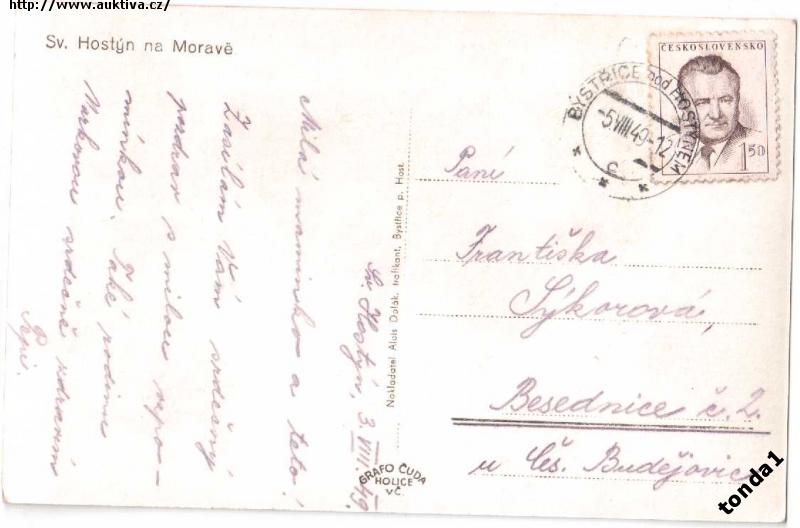 http://www.auktiva.cz/
Sv. Hostýn na Moravě
Sv. Hostýn, 3. VIII. 49.
Milá maminko a teto!
Zasílám Vám srdečný
pozdrav s milou vzpo-
mínkou. Také rodinu
srdečně zdravím
Pepi.
Nakladatel Alois Dolák, trafikant, Bystřice p. Host.
GRAFO ČUDA
HOLICE
V Č.
BYSTŘICE pod HOSTÝNEM
-5.VIII.49-12
c
ČESKOSLOVENSKO
1 50
Paní
Františka
Sýkorová,
Besednice č. 2.
u Čes. Budějovic
tonda1